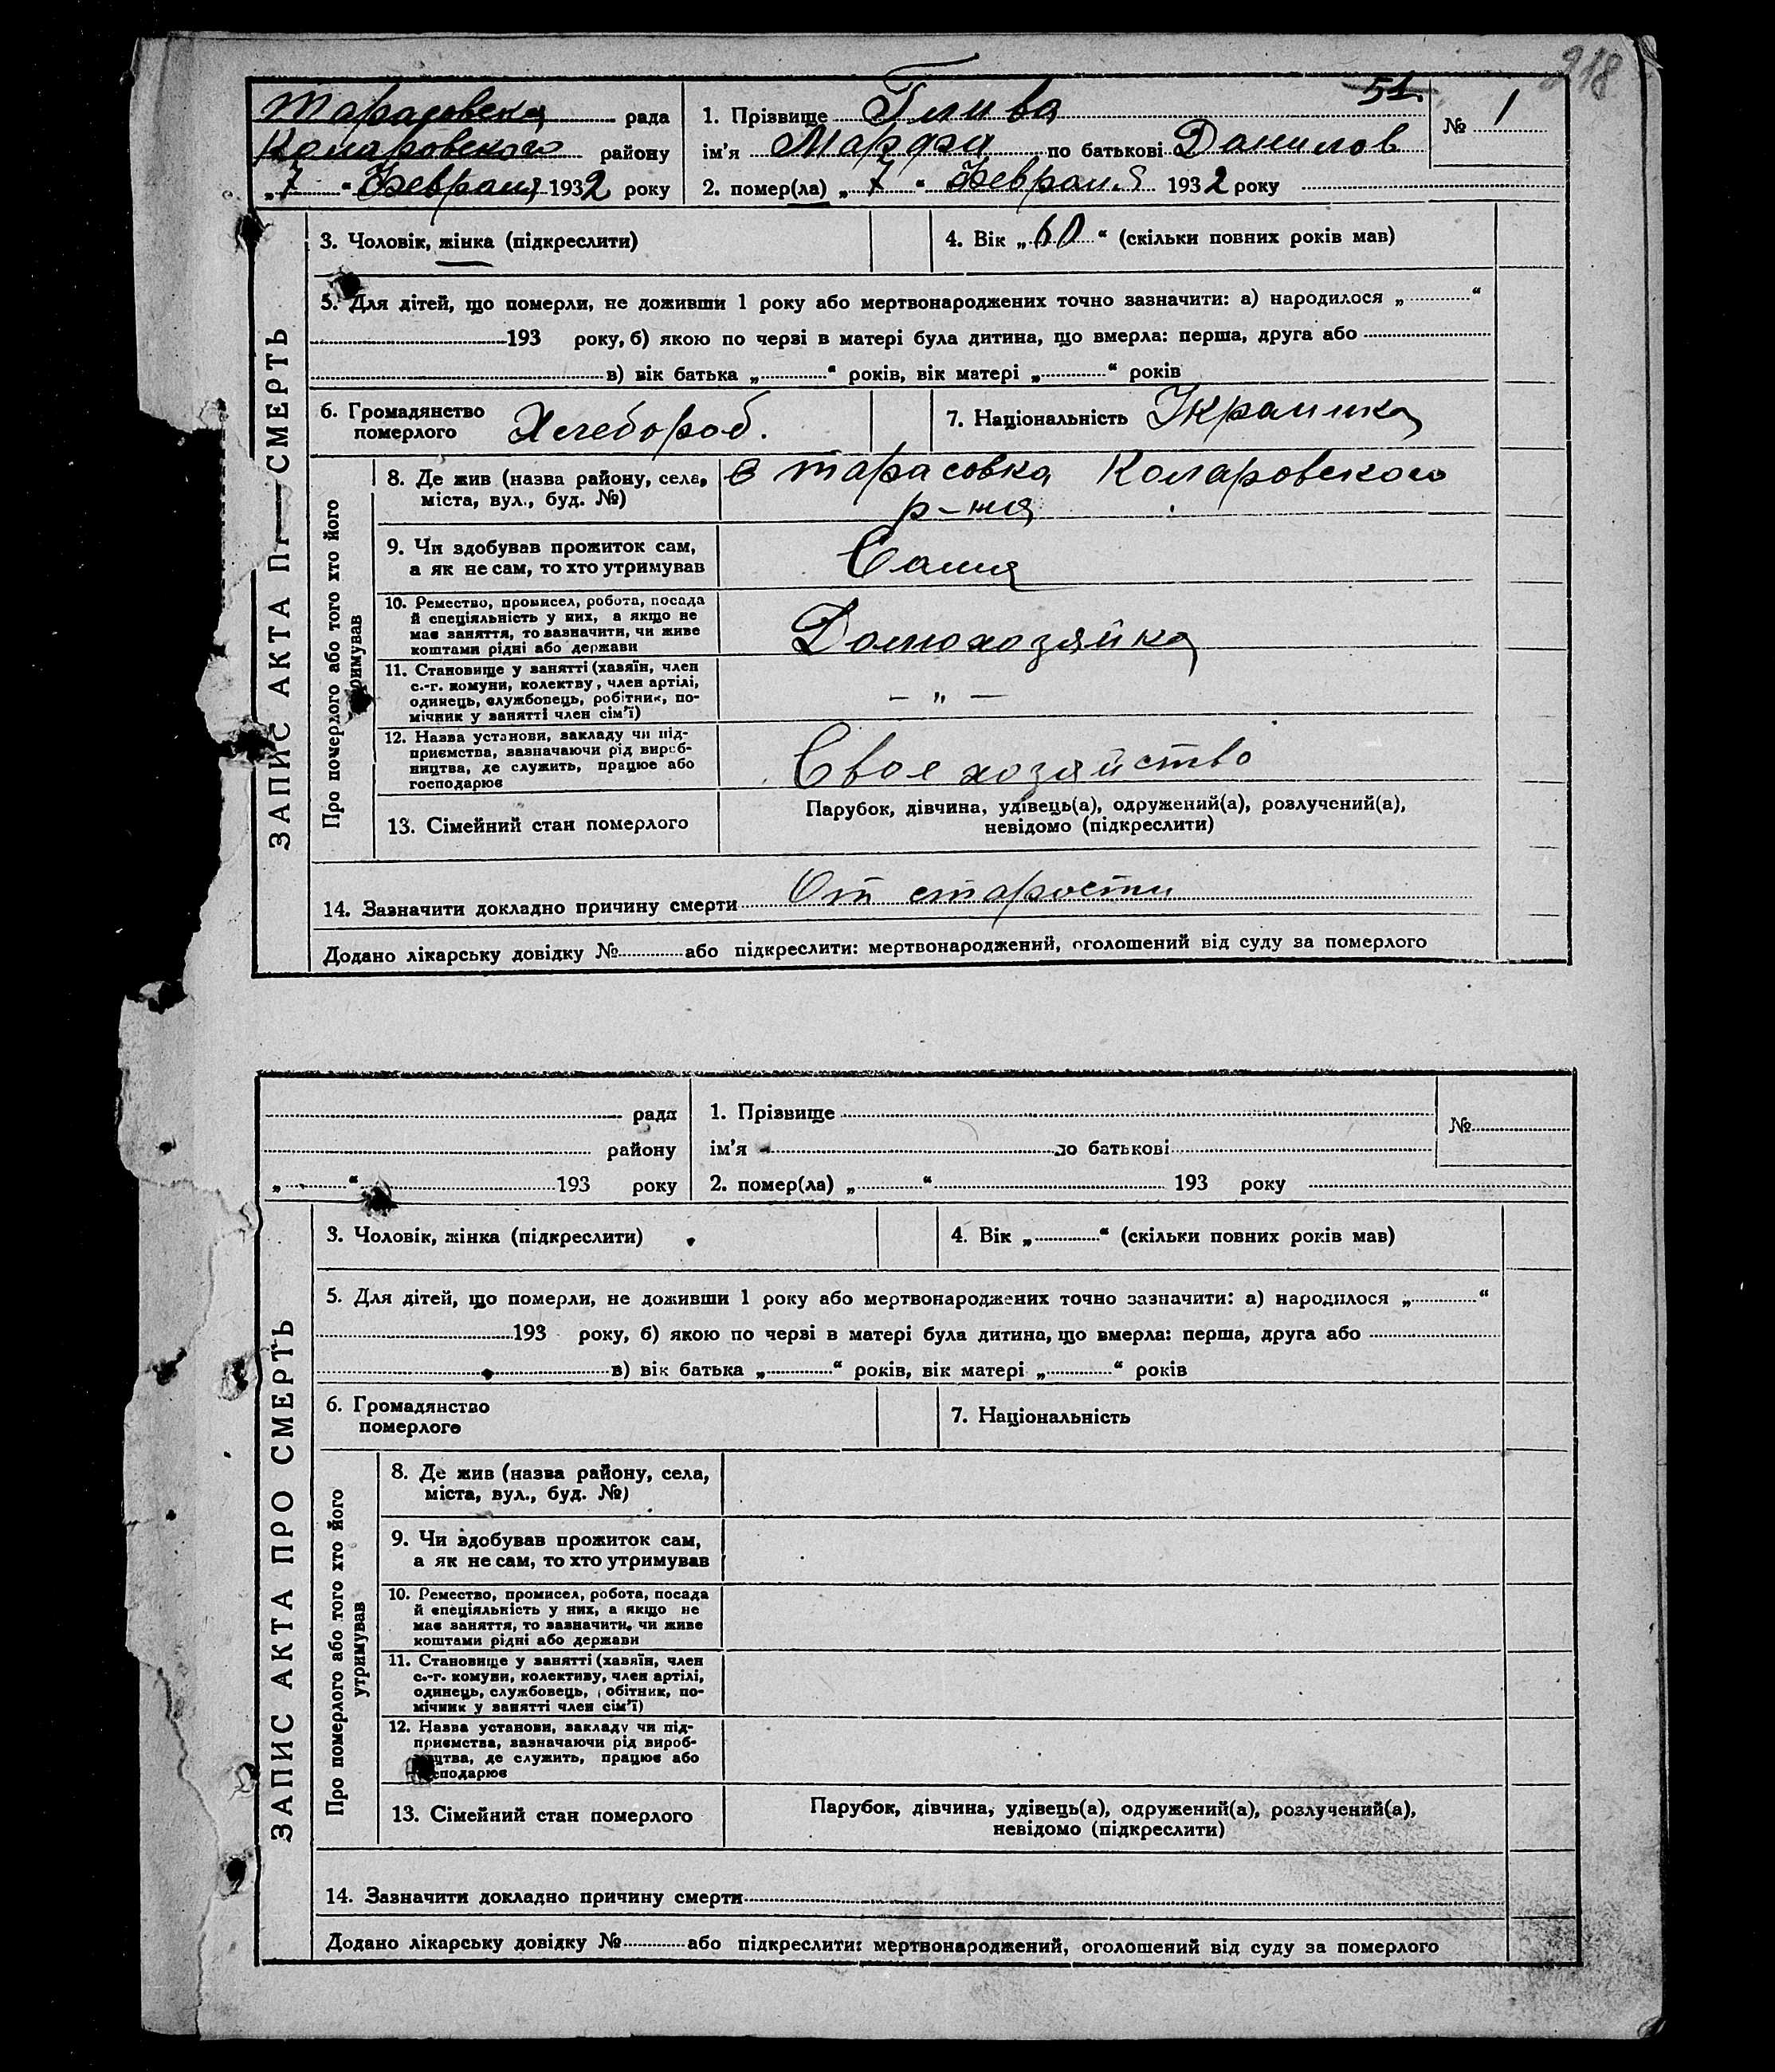 218
Тарасовска рада
Коларовского району
„7“ Февраля 1932 року
1. Прізвище Глива 51.
ім’я Марфа по батькові Данилов
2. помер(ла) „7“ Февраля 1932 року
№ 1
ЗАПИС АКТА ПР СМЕРТЬ
3. Чоловік, жінка (підкреслити)
4. Вік „60“ (скільки повних років мав)
5. Для дітей, що померли, не доживши 1 року або мертвонароджених точно зазначити: а) народилося „ “
193 року, б) якою по черзі в матері була дитина, що вмерла: перша, друга або
в) вік батька „ “ років, вік матері „ “ років
6. Громадянство
померлого Хлебороб.
7. Національність Украинка
Про померлого або того хто його
римував
8. Де жив (назва району, села,
міста, вул., буд. №)
в Тарасовка Коларовского
р-на
9. Чи здобував прожиток сам,
а як не сам, то хто утримував
Сама
10. Ремество, промисел, робота, посада
й спеціяльність у них, а якщо не
має заняття, то зазначити, чи живе
коштами рідні або держави
Домохозяйка
11. Становище у занятті (хазяїн, член
с.-г. комуни, колективу, член артілі,
одинець, службовець, робітник, по-
мічник у занятті член сім’ї)
— „ —
12. Назва установи, закладу чи під-
приємства, зазначаючи рід вироб-
ництва, де служить, працює або
господарює
Свое хозяйство
13. Сімейний стан померлого
Парубок, дівчина, удівець(а), одружений(а), розлучений(а),
невідомо (підкреслити)
14. Зазначити докладно причину смерти От старости
Додано лікарську довідку № або підкреслити: мертвонароджений, оголошений від суду за померлого
рада
району
„ “ 193 року
1. Прізвище
ім’я по батькові
2. помер(ла) „ “ 193 року
№
ЗАПИС АКТА ПРО СМЕРТЬ
3. Чоловік, жінка (підкреслити)
4. Вік „ “ (скільки повних років мав)
5. Для дітей, що померли, не доживши 1 року або мертвонароджених точно зазначити: а) народилося „ “
193 року, б) якою по черзі в матері була дитина, що вмерла: перша, друга або
в) вік батька „ “ років, вік матері „ “ років
6. Громадянство
померлого
7. Національність
Про померлого або того хто його
утримував
8. Де жив (назва району, села,
міста, вул., буд. №)
9. Чи здобував прожиток сам,
а як не сам, то хто утримував
10. Ремество, промисел, робота, посада
й спеціяльність у них, а якщо не
має заняття, то зазначити, чи живе
коштами рідні або держави
11. Становище у занятті (хазяїн, член
с.-г. комуни, колективу, член артілі,
одинець, службовець, обітник, по-
мічник у занятті член сім’ї)
12. Назва установи, закладу чи під-
приємства, зазначаючи рід вироб-
цтва, де служить, працює або
сподарює
13. Сімейний стан померлого
Парубок, дівчина, удівець(а), одружений(а), розлучений(а),
невідомо (підкреслити)
14. Зазначити докладно причину смерти
Додано лікарську довідку № або підкреслити: мертвонароджений, оголошений від суду за померлого